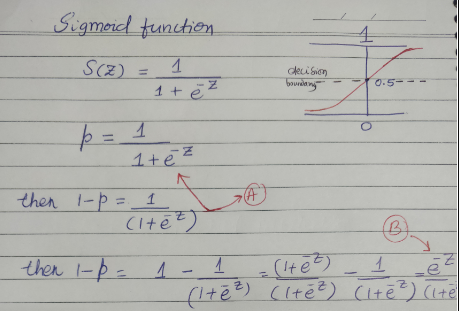 Sigmoid function
1
S(z) = 1 / (1 + e^-z)
decision boundary
0.5
0
p = 1 / (1 + e^-z)
then 1-p = 1 / (1+e^-z)
A
B
then 1-p = 1 - 1 / (1+e^-z) = (1+e^-z) / (1+e^-z) - 1 / (1+e^-z) = e^-z / (1+e